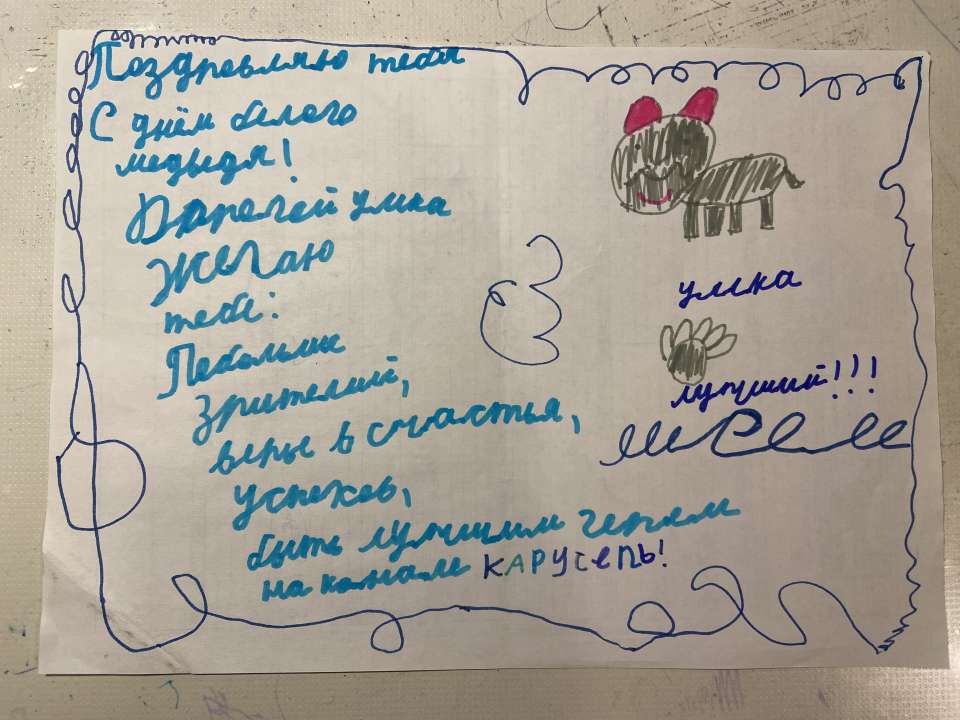 Поздровляю тебя
С днём белого
медьедя!
Дарогой умка
Желаю
тебе:
Побольше
зрителий,
веры в счастья,
успехов,
быть лутшим героям
на канале КАРУСЕЛЬ!
умка
лутший!!!